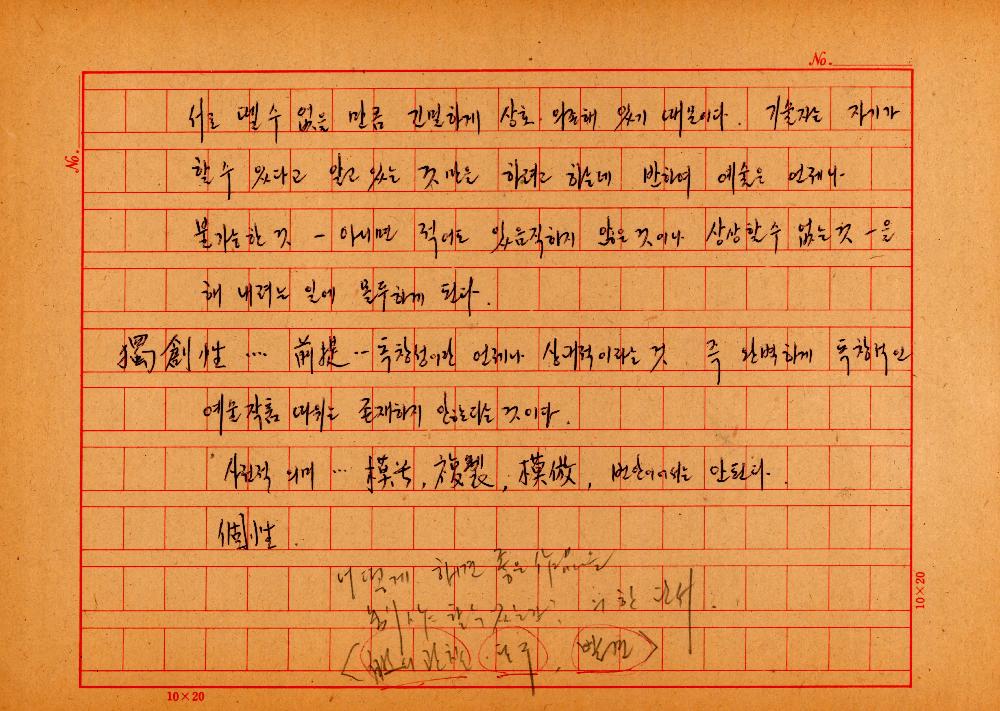 No.
No.
서로 뗄 수 없을 만큼 긴밀하게 상호 의존해 있기 때문이다. 기술자는 자기가
할 수 있다고 알고 있는 것 만을 하려고 하는데 반하여 예술은 언제나
불가능한 것 - 아니면 적어도 있음직하지 않은 것이나 상상할 수 없는 것 - 을
해 내려는 일에 몰두하게 된다.
獨創性 … 前提 … 독창성이란 언제나 상대적이라는 것. 즉 완벽하게 독창적인
예술작품 따위는 존재하지 않는다는 것이다.
사전적 의미 … 模写, 複製, 模倣, 번안이어서는 안된다.
個性.
어떻게 하면 좋은 작품을
한 단서.
10×20
10×20